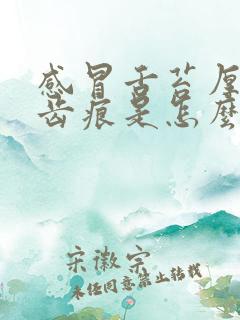 感冒舌苔厚
齿痕是怎麽
宋徽宗
未经同意禁止转载